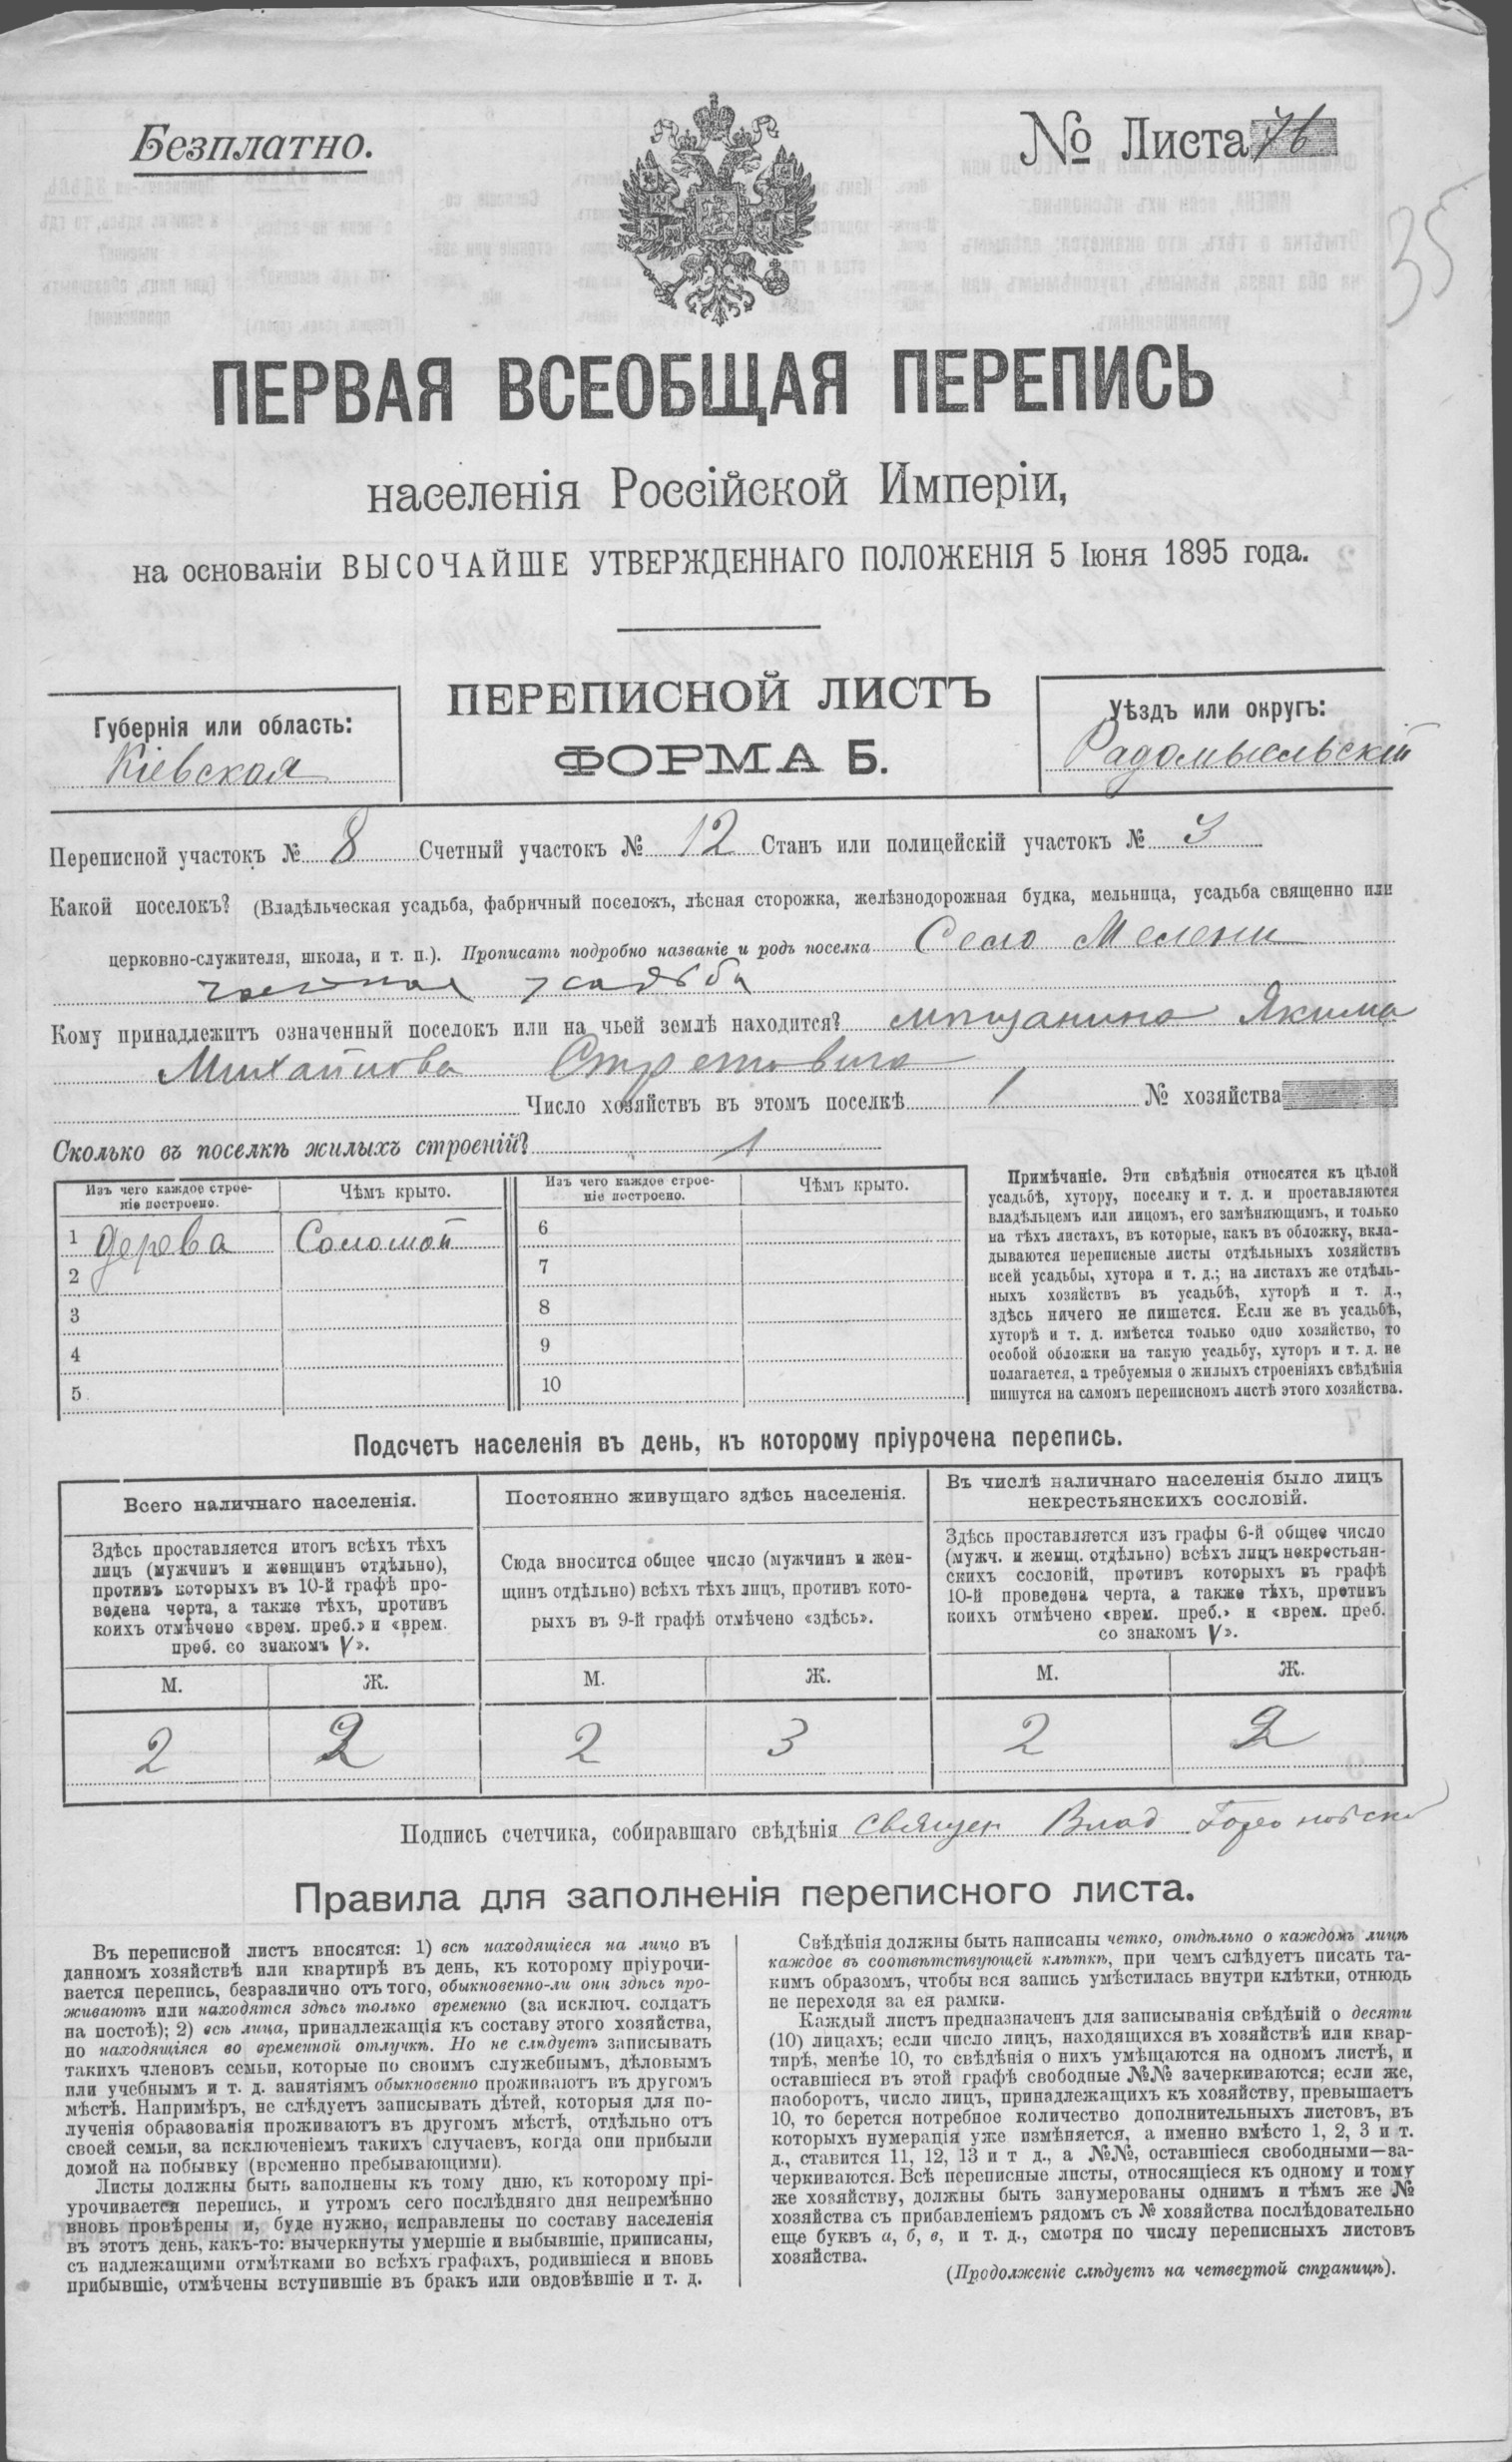 Безплатно.
№ Листа 76
35
ПЕРВАЯ ВСЕОБЩАЯ ПЕРЕПИСЬ
населенія Россійской Имперіи,
на основаніи ВЫСОЧАЙШЕ УТВЕРЖДЕННАГО ПОЛОЖЕНІЯ 5 Іюня 1895 года.
Губернія или область:
Кіевская
ПЕРЕПИСНОЙ ЛИСТЪ
ФОРМА Б.
Уѣздъ или округъ:
Радомысльскій
Переписной участокъ № 8 Счетный участокъ № 12 Станъ или полицейскій участокъ № 3
Какой поселокъ? (Владѣльческая усадьба, фабричный поселокъ, лѣсная сторожка, желѣзнодорожная будка, мельница, усадьба священно или
церковно-служителя, школа, и т. п.). Прописать подробно названіе и родъ поселка Село Мелени
усадьба
Кому принадлежитъ означенный поселокъ или на чьей землѣ находится? мѣщанина Якима
Михайлова
Число хозяйствъ въ этомъ поселкѣ 1 № хозяйства
Сколько въ поселкѣ жилыхъ строеній? 1
Изъ чего каждое строе-
ніе построено.
Чѣмъ крыто.
Изъ чего каждое строе-
ніе построено.
Чѣмъ крыто.
1 Дерева Соломой
2
3
4
5
6
7
8
9
10
Примѣчаніе. Эти свѣдѣнія относятся къ цѣлой
усадьбѣ, хутору, поселку и т. д. и проставляются
владѣльцемъ или лицомъ, его замѣняющимъ, и только
на тѣхъ листахъ, въ которые, какъ въ обложку, вкла-
дываются переписные листы отдѣльныхъ хозяйствъ
всей усадьбы, хутора и т. д.; на листахъ же отдѣль-
ныхъ хозяйствъ въ усадьбѣ, хуторѣ и т. д.,
здѣсь ничего не пишется. Если же въ усадьбѣ,
хуторѣ и т. д. имѣется только одно хозяйство, то
особой обложки на такую усадьбу, хуторъ и т. д. не
полагается, а требуемыя о жилыхъ строеніяхъ свѣдѣнія
пишутся на самомъ переписномъ листѣ этого хозяйства.
Подсчетъ населенія въ день, къ которому пріурочена перепись.
Всего наличнаго населенія.
Здѣсь проставляется итогъ всѣхъ тѣхъ
лицъ (мужчинъ и женщинъ отдѣльно),
противъ которыхъ въ 10-й графѣ про-
ведена черта, а также тѣхъ, противъ
коихъ отмѣчено «врем. преб.» и «врем.
преб. со знакомъ V».
М. Ж.
2 2
Постоянно живущаго здѣсь населенія.
Сюда вносится общее число (мужчинъ и жен-
щинъ отдѣльно) всѣхъ тѣхъ лицъ, противъ кото-
рыхъ въ 9-й графѣ отмѣчено «здѣсь».
М. Ж.
2 3
Въ числѣ наличнаго населенія было лицъ
некрестьянскихъ сословій.
Здѣсь проставляется изъ графы 6-й общее число
(мужч. и женщ. отдѣльно) всѣхъ лицъ некрестьян-
скихъ сословій, противъ которыхъ въ графѣ
10-й проведена черта, а также тѣхъ, противъ
коихъ отмѣчено «врем. преб.» и «врем. преб.
со знакомъ V».
М. Ж.
2 2
Подпись счетчика, собиравшаго свѣдѣнія Священ Влад
Правила для заполненія переписного листа.
Въ переписной листъ вносятся: 1) всѣ находящіеся на лицо въ
данномъ хозяйствѣ или квартирѣ въ день, къ которому пріурочи-
вается перепись, безразлично отъ того, обыкновенно-ли они здѣсь про-
живаютъ или находятся здѣсь только временно (за исключ. солдатъ
на постоѣ); 2) всѣ лица, принадлежащія къ составу этого хозяйства,
но находящіяся во временной отлучкѣ. Но не слѣдуетъ записывать
такихъ членовъ семьи, которые по своимъ служебнымъ, дѣловымъ
или учебнымъ и т. д. занятіямъ обыкновенно проживаютъ въ другомъ
мѣстѣ. Напримѣръ, не слѣдуетъ записывать дѣтей, которыя для по-
лученія образованія проживаютъ въ другомъ мѣстѣ, отдѣльно отъ
своей семьи, за исключеніемъ такихъ случаевъ, когда они прибыли
домой на побывку (временно пребывающими).
Листы должны быть заполнены къ тому дню, къ которому прі-
урочивается перепись, и утромъ сего послѣдняго дня непремѣнно
вновь провѣрены и, буде нужно, исправлены по составу населенія
въ этотъ день, какъ-то: вычеркнуты умершіе и выбывшіе, приписаны,
съ надлежащими отмѣтками во всѣхъ графахъ, родившіеся и вновь
прибывшіе, отмѣчены вступившіе въ бракъ или овдовѣвшіе и т. д.
Свѣдѣнія должны быть написаны четко, отдѣльно о каждомъ лицѣ
каждое въ соотвѣтствующей клѣткѣ, при чемъ слѣдуетъ писать та-
кимъ образомъ, чтобы вся запись умѣстилась внутри клѣтки, отнюдь
не переходя за ея рамки.
Каждый листъ предназначенъ для записыванія свѣдѣній о десяти
(10) лицахъ; если число лицъ, находящихся въ хозяйствѣ или квар-
тирѣ, менѣе 10, то свѣдѣнія о нихъ умѣщаются на одномъ листѣ, и
оставшіеся въ этой графѣ свободные №№ зачеркиваются; если же,
наоборотъ, число лицъ, принадлежащихъ къ хозяйству, превышаетъ
10, то берется потребное количество дополнительныхъ листовъ, въ
которыхъ нумерація уже измѣняется, а именно вмѣсто 1, 2, 3 и т.
д., ставится 11, 12, 13 и т д., а №№, оставшіеся свободными—за-
черкиваются. Всѣ переписные листы, относящіеся къ одному и тому
же хозяйству, должны быть занумерованы однимъ и тѣмъ же №
хозяйства съ прибавленіемъ рядомъ съ № хозяйства послѣдовательно
еще буквъ а, б, в, и т. д., смотря по числу переписныхъ листовъ
хозяйства.
(Продолженіе слѣдуетъ на четвертой страницѣ).